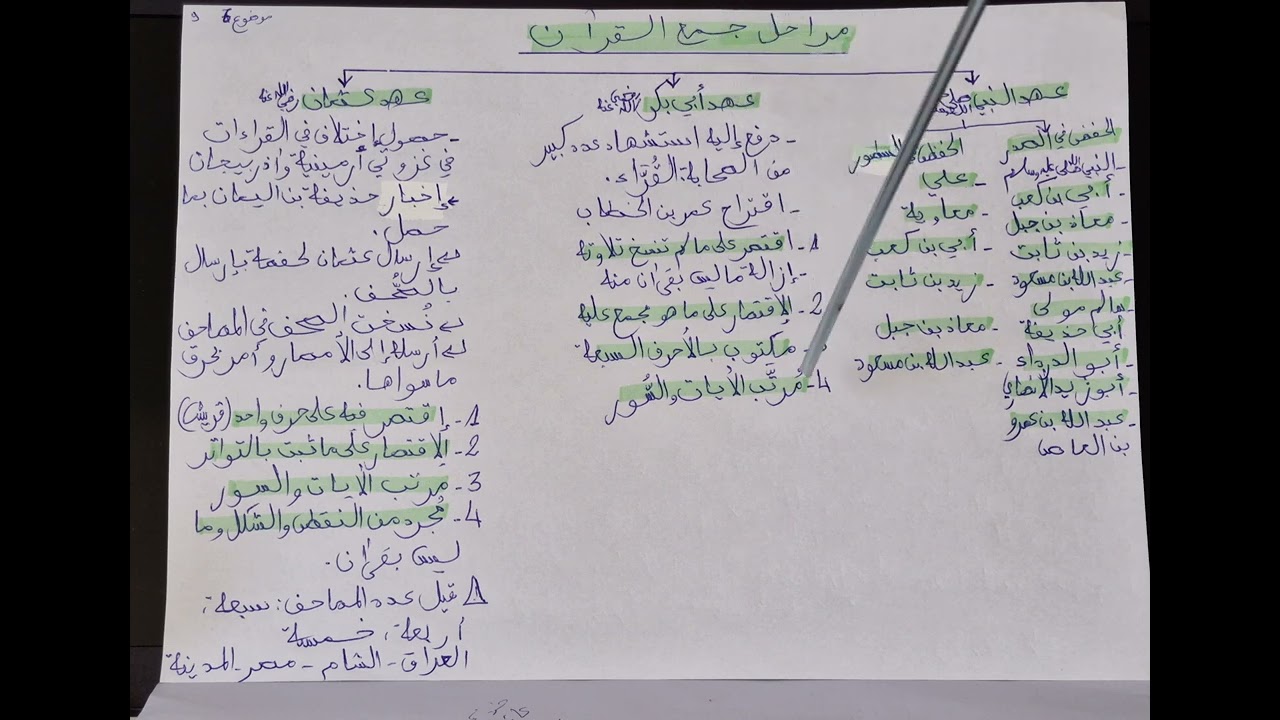 موضوع 6 و
مراحل جمع القرآن
عهد النبي صلى الله عليه وسلم
الحفظ في الصدر
- النبي صلى الله عليه وسلم
- أبي بن كعب
- معاذ بن جبل
- زيد بن ثابت
- عبد الله بن مسعود
- سالم مولى
أبي حذيفة
- أبو الدرداء
- أبو زيد الأنصاري
- عبد الله بن عمرو
بن العاص
الحفظ السطور
- علي
- معاوية
- أبي بن كعب
- زيد بن ثابت
- معاذ بن جبل
- عبد الله بن مسعود
عهد أبي بكر رضي الله عنه
- دفع إليه استشهاد عدد كبير
من الصحابة القُرَّاء.
- اقتراح عمر بن الخطاب
1- اقتصر على ما لم تنسخ تلاوته
- إزالة ما ليس بقرآن منه
2- الإقتصار على ما هو مجمع عليه
- مكتوب بالأحرف السبعة
4- مُرتَّب الأيات والسُّور
عهد عثمان رضي الله عنه
- حصول إختلاف في القراءات
في غزوتي أرمينية وأذربيجان
إخبار حذيفة بن اليمان بما
حصل.
إرسال عثمان لحفصة بإرسال
بالصُّحف.
نُسخت الصحف في المصاحف
أرسلها إلى الأمصار وأمر بحرق
ما سواها.
1- إقتصر فيه على حرف واحد (قريش)
2- الإقتصار على ما ثبت بالتواتر
3- مرتب الأيات والسور
4- مُجرد من النقط والشكل وما
ليس بقرآن.
قيل عدد المصاحف: سبعة،
أربعة، خمسة
العراق - الشام - مصر - المدينة